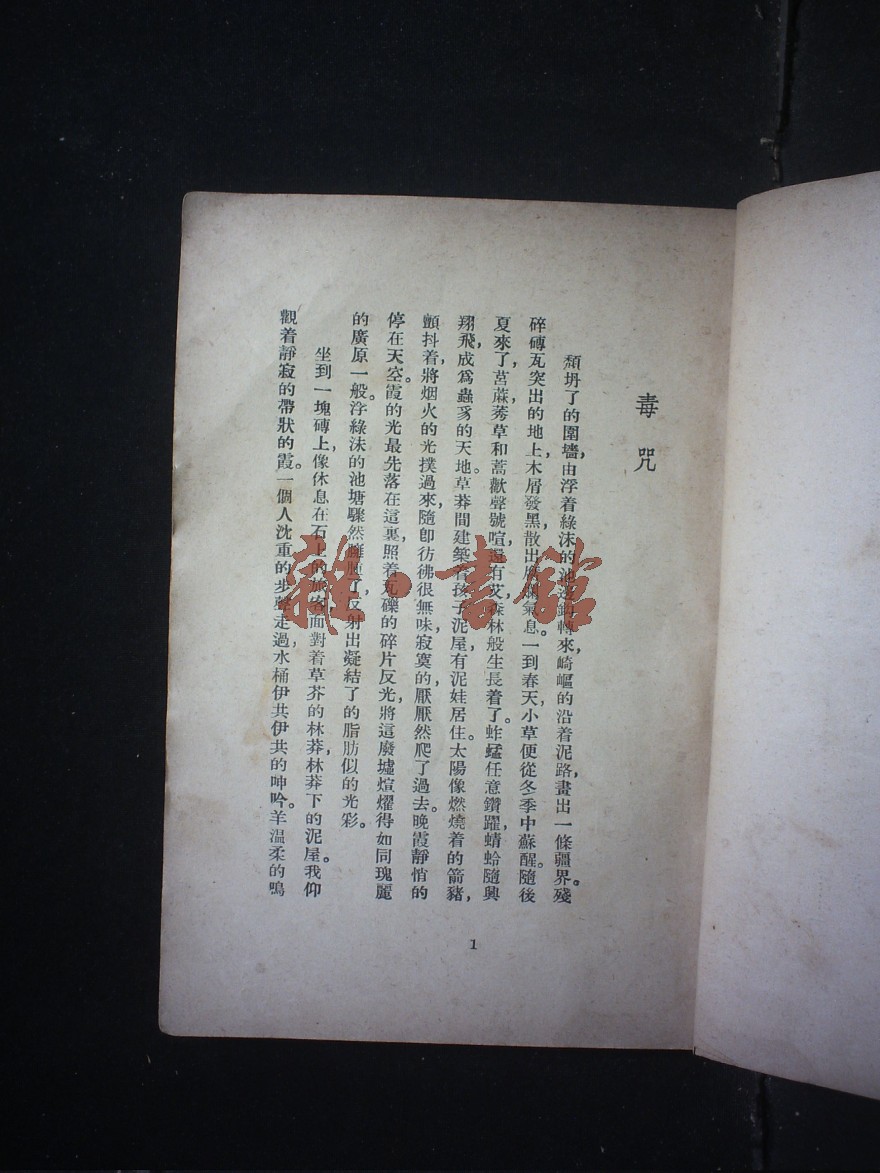 毒咒
頹坍了的圍墻,由浮着綠沫的池邊轉來,崎嶇的沿着泥路,畫出一條疆界。殘
碎磚瓦突出的地上,木屑發黑,散出氣息。一到春天,小草便從冬季中蘇醒。隨後
夏來了,莒蔴莠草和蒿歡聲號喧,還有艾森林般生長着了。蚱蜢任意鑽躍,蜻蛉隨興
翔飛,成爲蟲豸的天地。草莽間建築着孩子泥屋,有泥娃居住。太陽像燃燒着的箭豬,
顫抖着,將烟火的光撲過來,隨卽彷彿很無味寂寞的,厭厭然爬了過去。晚霞靜悄的
停在天空。霞的光最先落在這裏,照着瓦礫的碎片反光,將這廢墟煊燿得如同瑰麗
的廣原一般。浮綠沫的池塘驟然了,反射出凝結了的脂肪似的光彩。
坐到一塊磚上,像休息在石上的旅客,面對着草芥的林莽,林莽下的泥屋。我仰
觀着靜寂的帶狀的霞。一個人沈重的步聲走過,水桶伊共伊共的呻吟。羊溫柔的鳴
1
雜·書館